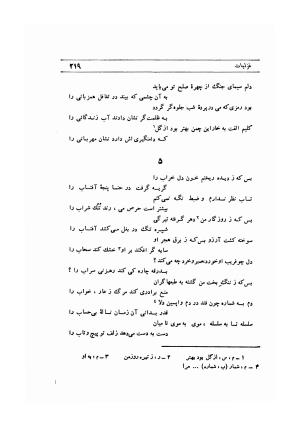 غزلیات
۲۱۹
دلم سیمای جنگ از چهرهٔ صلح تو می‌یابد
به آن چشمی که بیند در تغافل همزبانی را
بود رمزی که می در پردهٔ شب جلوه‌گر گردد
به ظلمت گر نشان دادند آب زندگانی را
کلیم الفت به خار این چمن بهتر بود از گل
که دامنگیری اش دارد نشان مهربانی را
۵
بس که ز دیده ریختم خون دل خراب را
گریه گرفت در حنا پنجهٔ آفتاب را
تاب نظر ندارم و ضبط نگه نمی‌کنم
بیشتر است حرص می ، رند تنک شراب را
بس که ز روزگار من ۲ وهر گرفته تیرگی
شیره تنگ در بغل نمی‌کند آفتاب را
سوخته کشت آرزو بس که ز برق هجر او
سایه گر افکند بر او ۳ خشک کند سحاب را
دل چو فریب او خورد صبر و خرد چه می‌کند ؟
بدرقه چاره کی کند رهزنی سراب را ؟
بس که ز تنگتر بخت من گشته به طبعها گران
منع برادری کند مرگ ز عار ، خواب را
دم به شماره چون فتد در دم واپسین دلا ۴
قدر بدانی آن زمان نسالهٔ بی‌حساب را
سلسله تا به سلسله ، موی به موی تا میان
دست به دست می‌دهد زلف تو پیچ و تاب را
۱ – م ، س ، از گل بود بهتر ۲ – د ، ز تیره روز من ۳ – م ، به او
۴ – م ، شمار (ب ، شماره) ... مرا